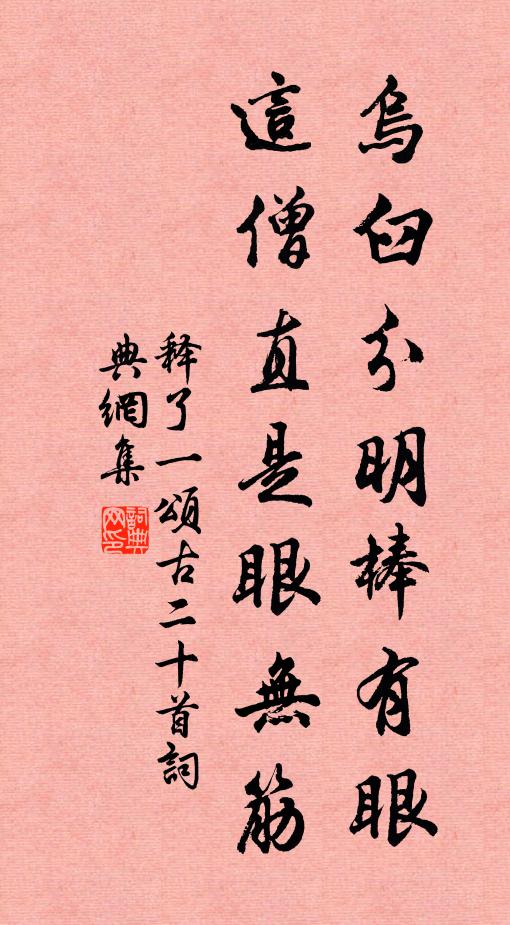 烏臼分明棒有眼
這僧直是眼無筋
释了一頌古二十首詞
典網集
詞典网印